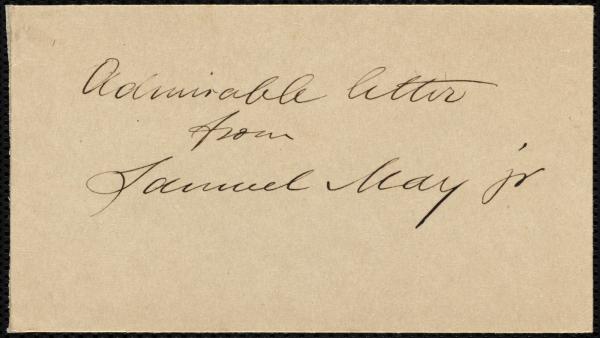 Admirable letter
from
Samuel May jr